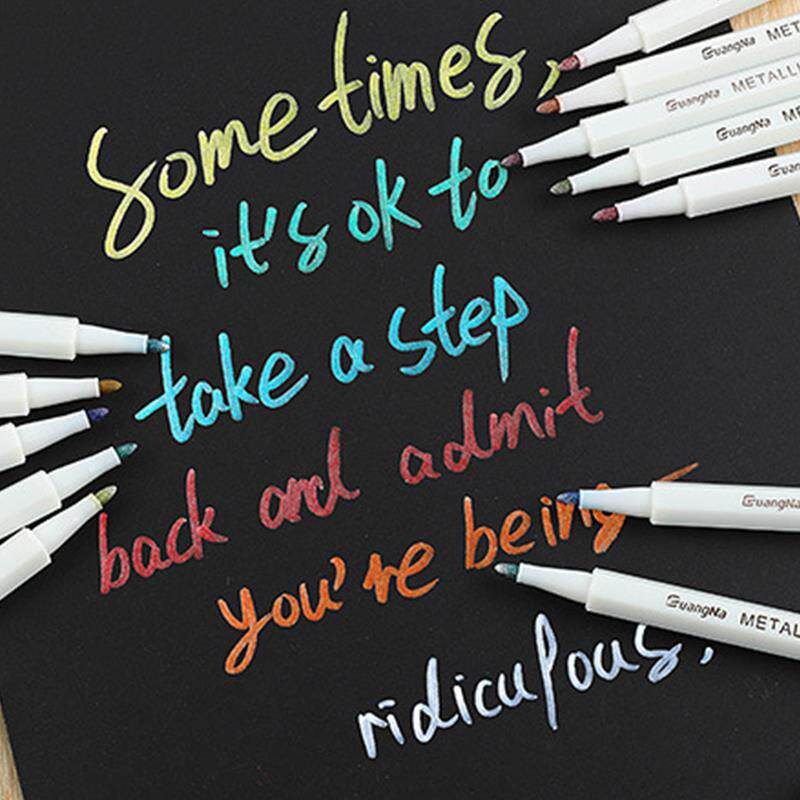 Sometimes,
it's ok to
take a step
back and admit
you're being
ridiculous,
GuangNa MET
GuangNa METALLI
GuangNa ME
Guang
GuangNa
GuangNa METAL